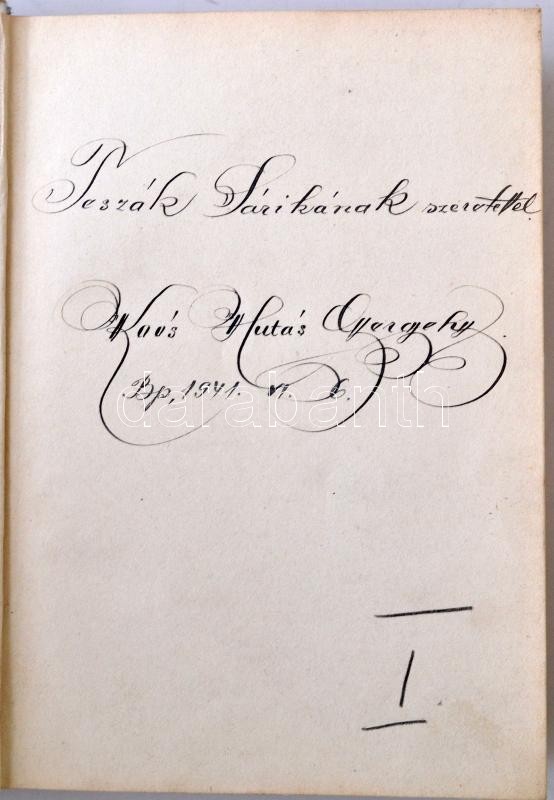 Teszák Sárikának szeretettel.
Koós Hutás Gergely.
Bp, 1941. VI. 6.
darabanth
I